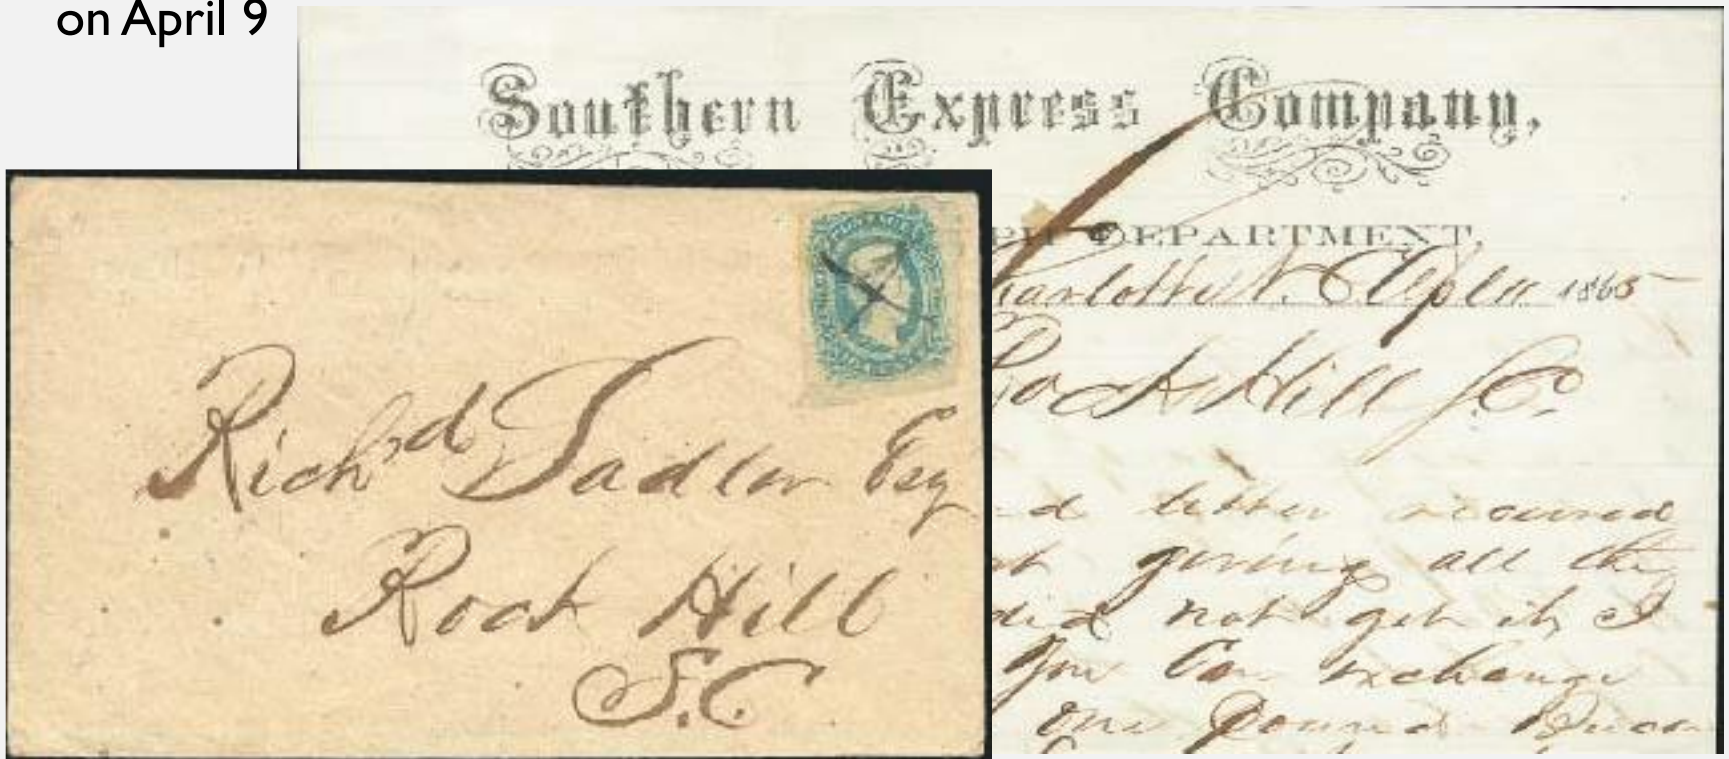 on April 9
Southern Express Company,
PH DEPARTMENT,
1865
Rock Hill
letter received
giving all the
did not get it, I
you can exchange
one pound
Richd Sadler Esq
Rock Hill
S.C.